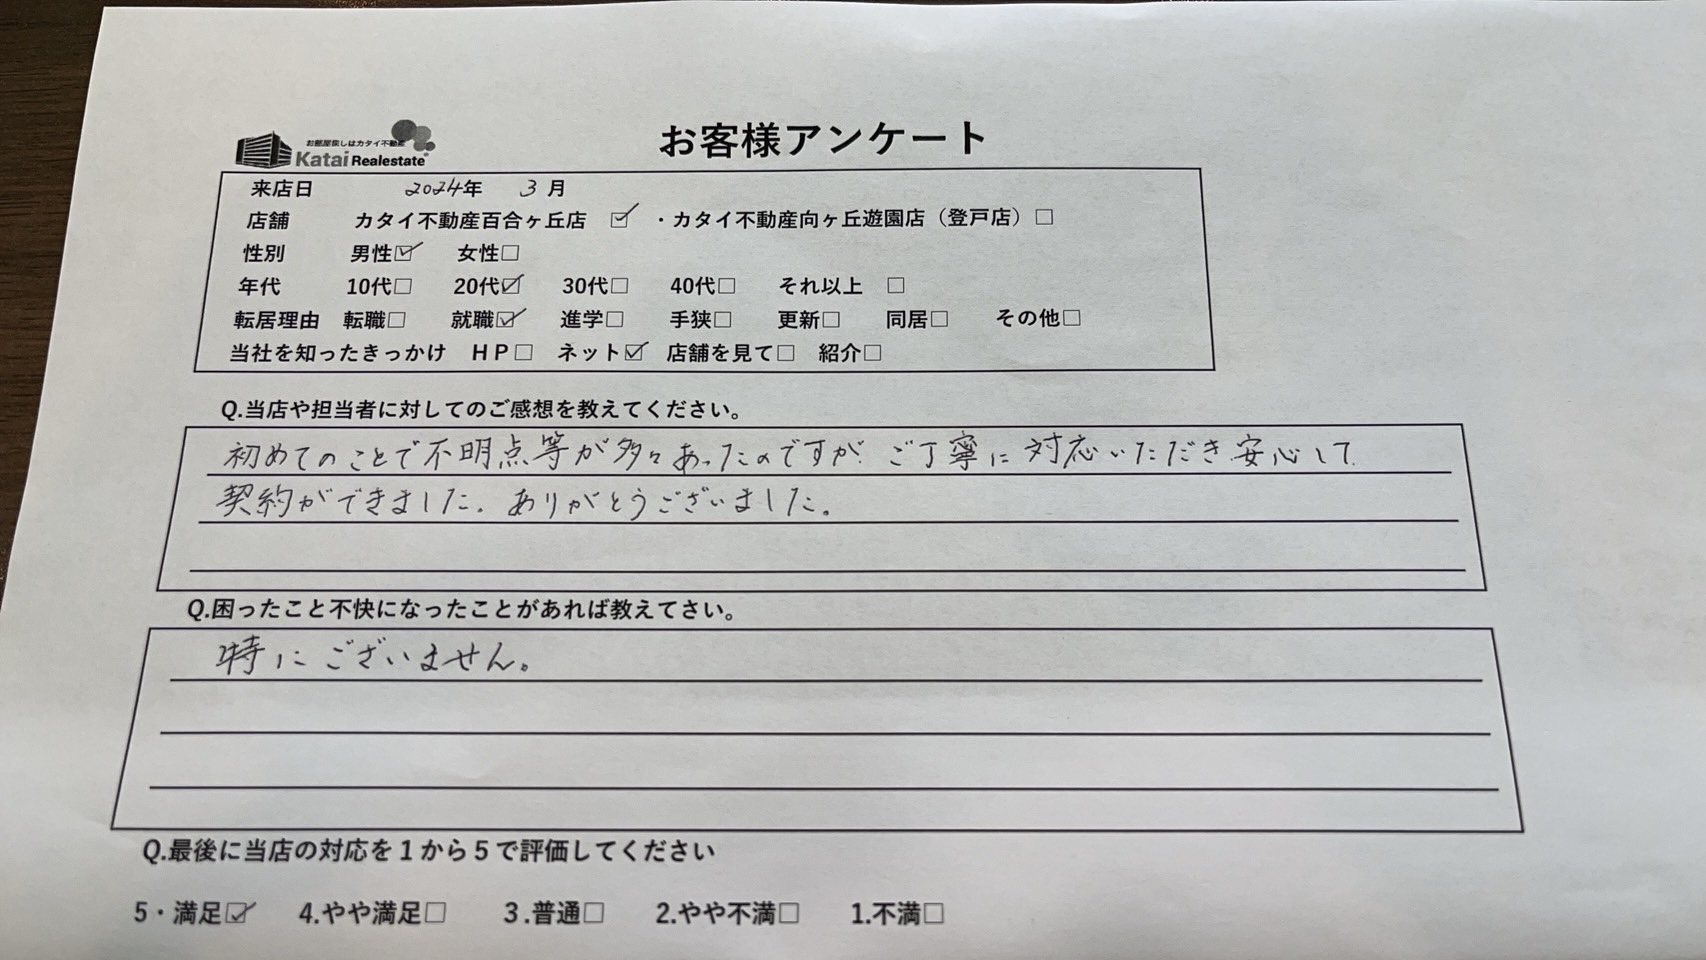 お客様アンケート
お部屋探しはカタイ不動産
Katai Realestate
来店日 2024年 3月
店舗 カタイ不動産百合ヶ丘店 ☑ ・カタイ不動産向ヶ丘遊園店（登戸店）□
性別 男性☑ 女性□
年代 10代□ 20代☑ 30代□ 40代□ それ以上 □
転居理由 転職□ 就職☑ 進学□ 手狭□ 更新□ 同居□ その他□
当社を知ったきっかけ ＨＰ□ ネット☑ 店舗を見て□ 紹介□
Q.当店や担当者に対してのご感想を教えてください。
初めてのことで不明点等が多々あったのですが、ご丁寧に対応いただき安心して
契約ができました。ありがとうございました。
Q.困ったこと不快になったことがあれば教えてさい。
特にございません。
Q.最後に当店の対応を１から５で評価してください
5・満足☑ 4.やや満足□ ３.普通□ 2.やや不満□ 1.不満□